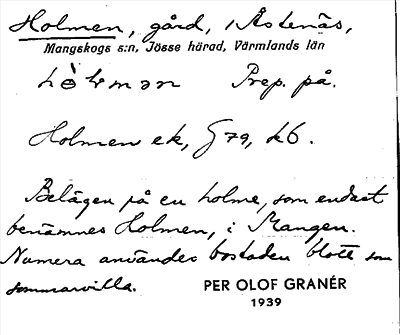 Holmen, gård, i Åstenäs,
Mangskogs s:n, Jösse härad, Värmlands län
Prep. på.
Holmen ek, § 79, k6.
Belägen på en holme, som endast
benämnes Holmen, i Mangen.
Numera användes bostaden blott som
sommarvilla.
PER OLOF GRANÉR
1939